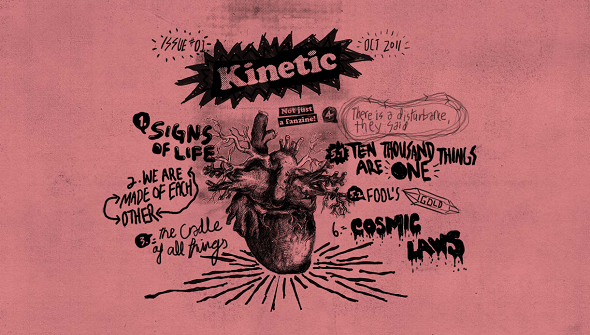 ISSUE #01
OCT 2011
Kinetic
Not just
a fanzine!
1. SIGNS
OF LIFE
2. WE ARE
MADE OF EACH
OTHER
3. the Cradle
of all things
4.
There is a disturbance,
they said
TEN THOUSAND THINGS
ARE ONE
FOOL'S GOLD
6- COSMIC
LAWS